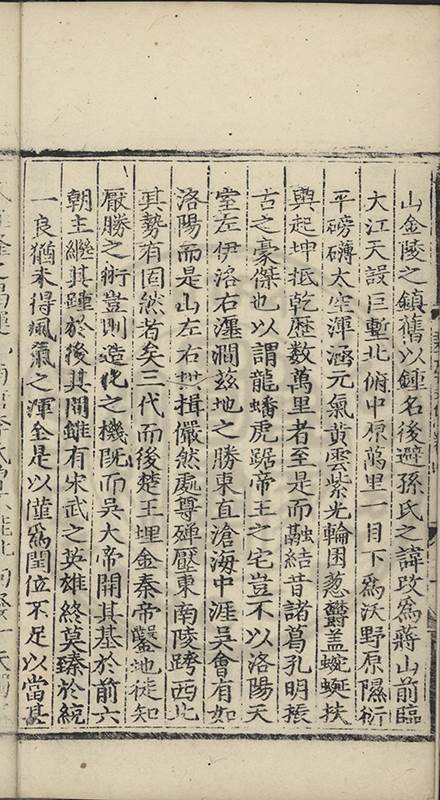 山金陵之鎮舊以鍾名後避孫氏之諱攺爲蔣山前臨
大江天設巨塹北俯中原萬里一目下爲沃野原隰衍
平磅礴太空渾涵元氣黃雲紫光輪囷葱欝盖蜿蜒扶
輿起坤抵乾歷數萬里者至是而融結昔諸葛孔明張
古之豪傑也以謂龍蟠虎踞帝王之宅豈不以洛陽天
室左伊洛右瀍澗兹地之勝東直滄海中涯吳會有如
洛陽而是山左右拱揖儼然處尊殫壓東南陵跨西北
其勢有固然者矣三代而後楚王埋金秦帝鑿地徒知
厭勝之術豈測造化之機旣而吳大帝開其基於前六
朝主繼其踵於後其間雖有宋武之英雄終莫臻於統
一良猶未得風氣之渾全是以僅爲閏位不足以當甚